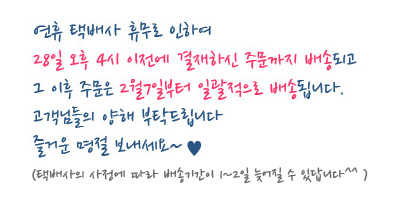 연휴 택배사 휴무로 인하여
28일 오후 4시 이전에 결재하신 주문까지 배송되고
그 이후 주문은 2월7일부터 일괄적으로 배송됩니다.
고객님들의 양해 부탁드립니다
즐거운 명절 보내세요~ ♥
(택배사의 사정에 따라 배송기간이 1~2일 늦어질 수 있답니다^^ )